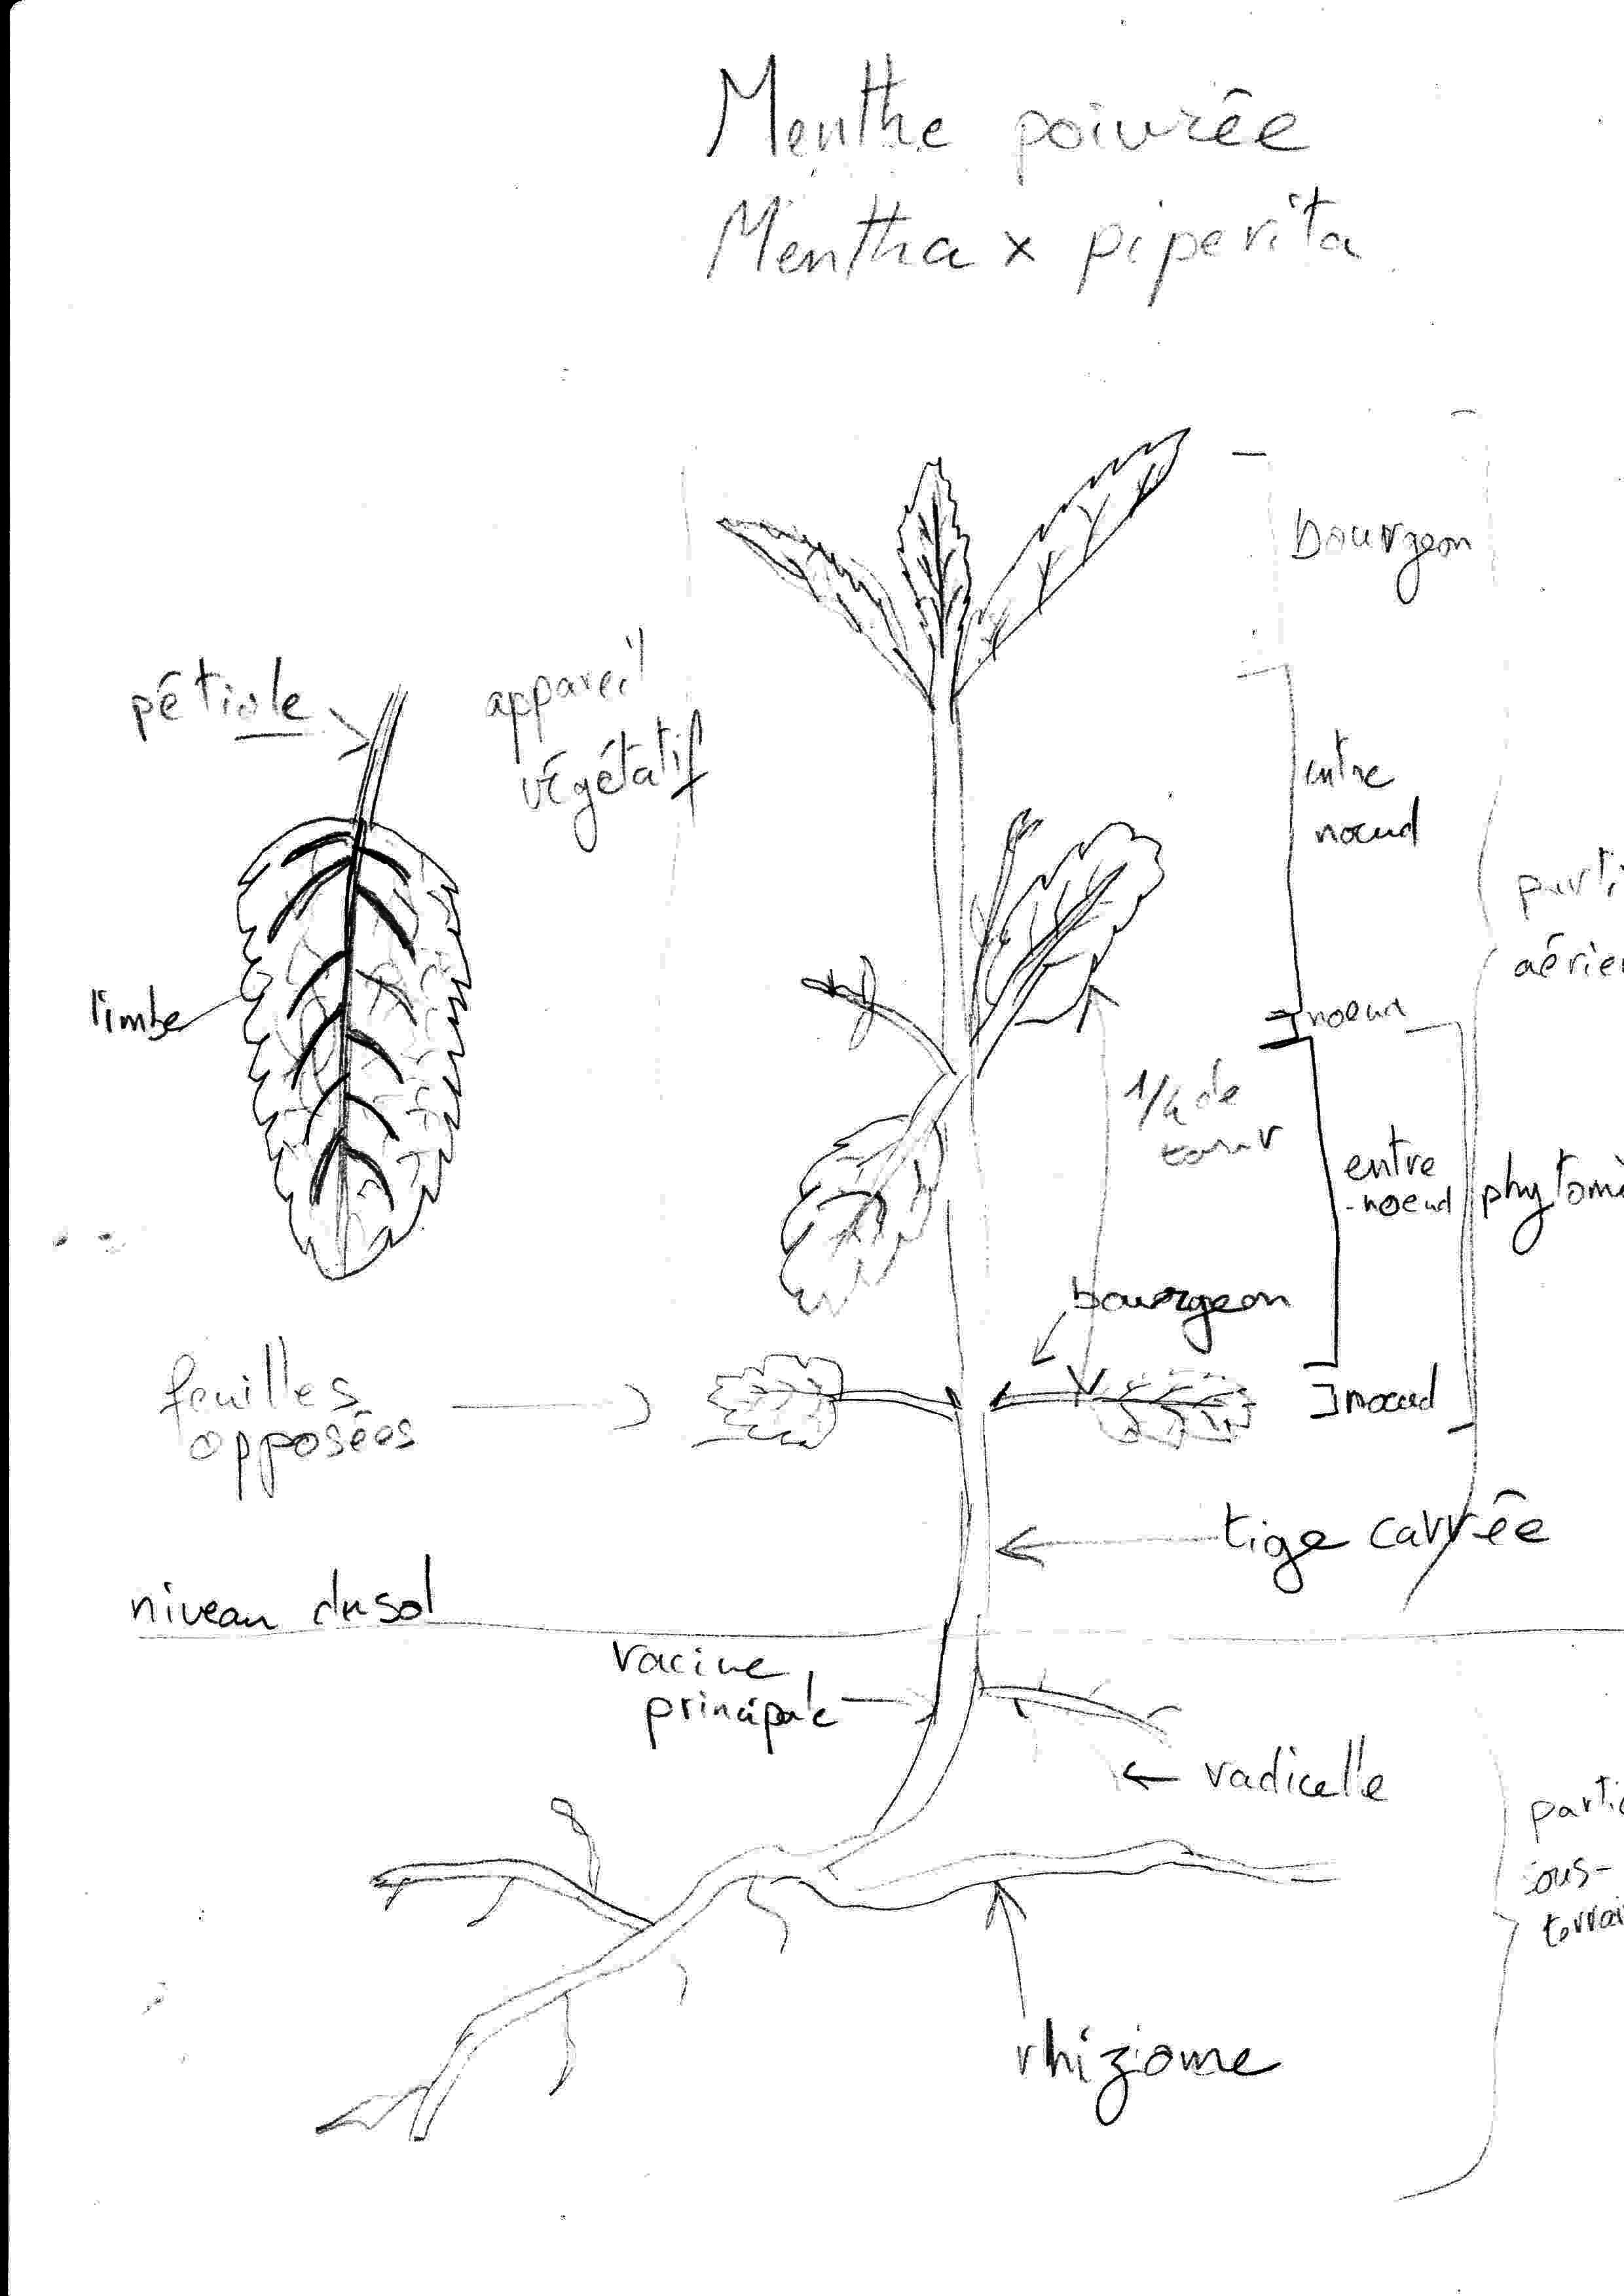 Menthe poivrée
Mentha x piperita
bourgeon
pétiole
appareil
végétatif
entre
noeud
parti
aérie
limbe
noeud
1/4 de
tour
entre
-noeud
phytomè
bourgeon
feuilles
opposées
noeud
tige carrée
niveau du sol
racine
principale
radicelle
parti
sous-
terrai
rhizome